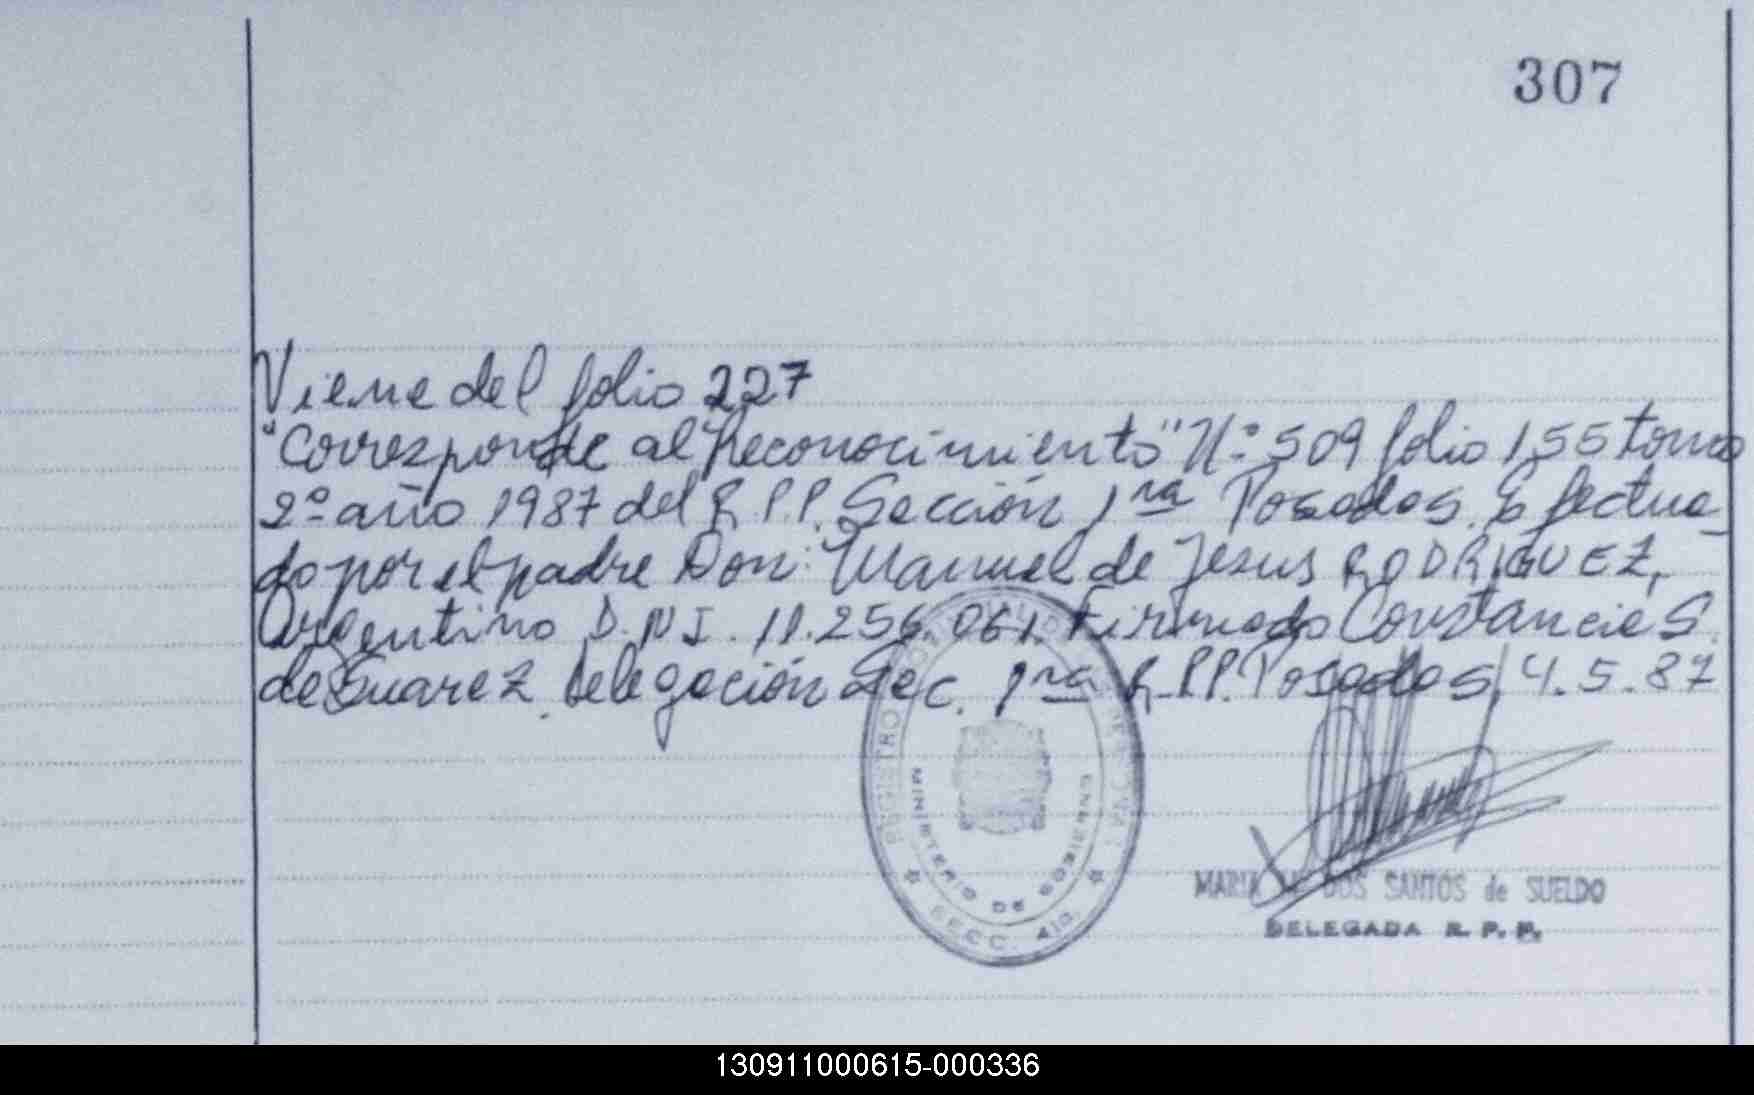 307
Viene del folio 227
"Corresponde al "Reconocimiento" N.º 509 folio 155 tomo
2º año 1987 del R.P.P. Sección 1ra Posadas. Efectua-
do por el padre Don: Manuel de Jesus RODRIGUEZ,
Argentino D.N.I. 11.256.061. Firmado Constancia S.
de Suarez. Delegación Sec. 1ra R.P.P. Posadas, 4.5.87
REGISTRO
MINISTERIO DE GOBIERNO
SECC. 4ta.
MARIA DOS SANTOS de SUELDO
DELEGADA R. P. P.
130911000615-000336